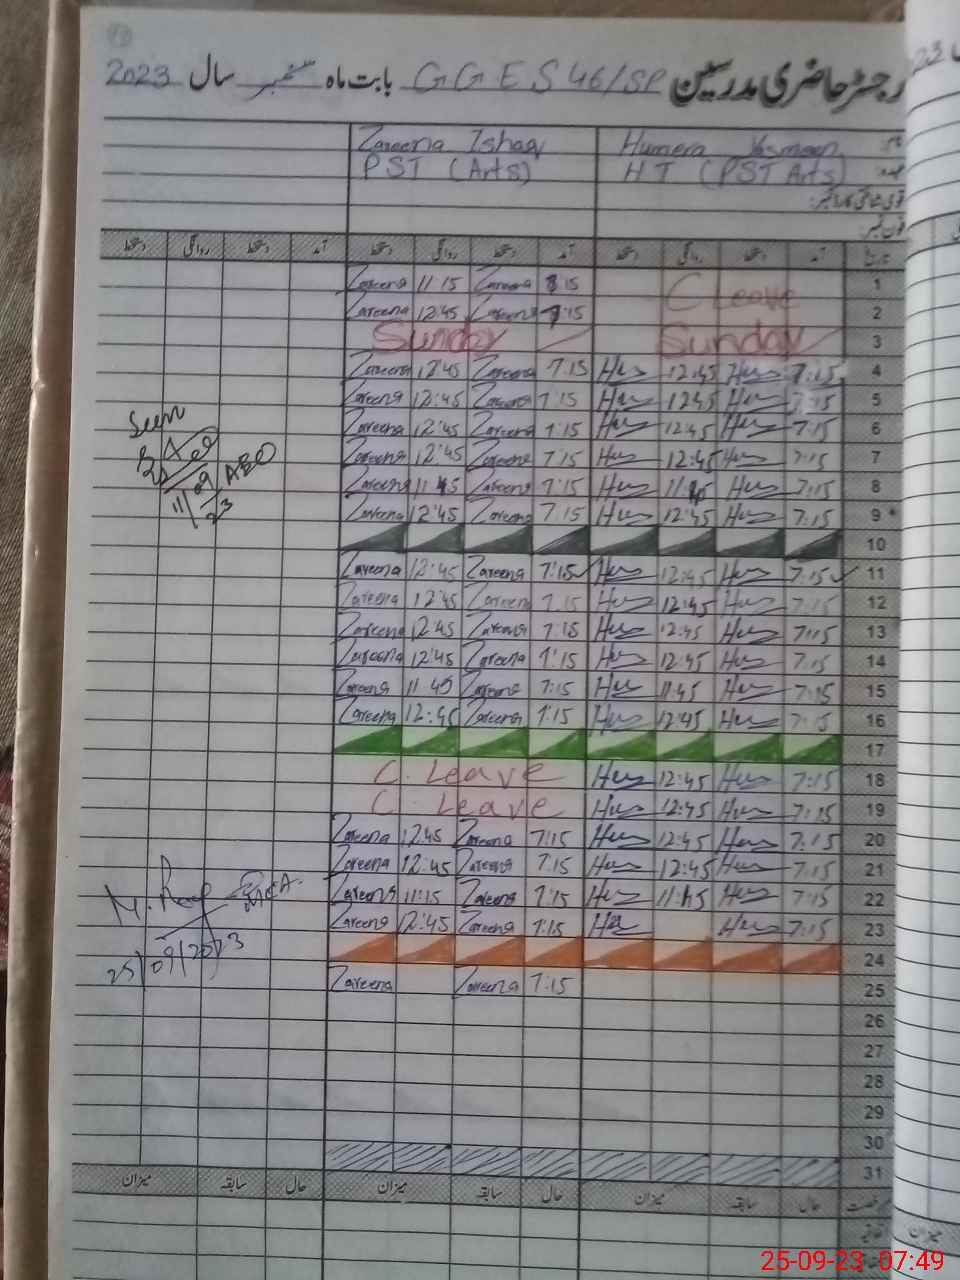 رجسٹر حاضری مدرسین GGES 46/SP بابت ماہ ستمبر سال 2023
Zareena Ishaq Humera Yasmeen
PST (Arts) HT (PST Arts)
دستخط روانگی دستخط آمد دستخط روانگی دستخط آمد دستخط روانگی دستخط آمد تاریخ
Zareena 11:15 Zareena 15 1
Zareena 12:45 Zareena 7:15 C Leave 2
Sunday Sunday 3
Zareena 12:45 Zareena 7:15 Hus 12:45 Hus 7:15 4
Zareena 12:45 Zareena 7:15 Hus 1245 Hus 7:15 5
Zareena 12:45 Zareena 7:15 Hus 12:45 Hus 7:15 6
Zareena 12:45 Zareena 7:15 Hus 12:45 Hus 7:15 7
Zareena Zareena 7:15 Hus Hus 7:15 8
Zareena 12:45 Zareena 7:15 Hus 12:45 Hus 7:15 9
10
Zareena 12:45 Zareena 7:15 Hus 12:45 Hus 7:15 11
Zareena 12:45 Zareena 7:15 Hus 12:45 Hus 7:15 12
Zareena 12:45 Zareena 7:15 Hus 12:45 Hus 7:15 13
Zareena 12:45 Zareena 7:15 Hus 12:45 Hus 7:15 14
Zareena 11:45 Zareena 7:15 Hus 11:45 Hus 7:15 15
Zareena 12:45 Zareena 7:15 Hus 12:45 Hus 7:15 16
17
C. Leave Hus 12:45 Hus 7:15 18
C. Leave Hus 12:45 Hus 7:15 19
Zareena 12:45 Zareena 7:15 Hus 12:45 Hus 7:15 20
Zareena 12:45 Zareena 7:15 Hus 12:45 Hus 7:15 21
Zareena 11:15 Zareena 7:15 Hus Hus 7:15 22
Zareena 12:45 Zareena 7:15 Hus Hus 7:15 23
24
Zareena Zareena 7:15 25
26
27
28
29
30
31
Seen
AEO
11/09/23
M. Rauf MEA.
25/09/2023
میزان سابقہ حال میزان سابقہ حال میزان سابقہ حال
میزان
25-09-23 07:49